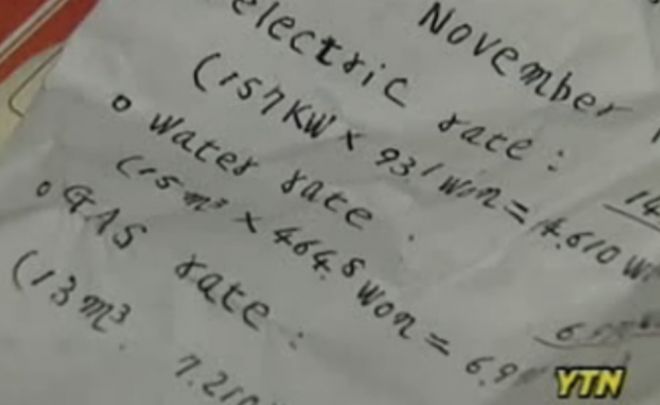 November
electric rate :
(157KW × 93.1 won = 14.610 W
o water rate :
(15 m³ × 464.8 won = 6.9
o GAS rate :
(13 m³ 7.210
YTN